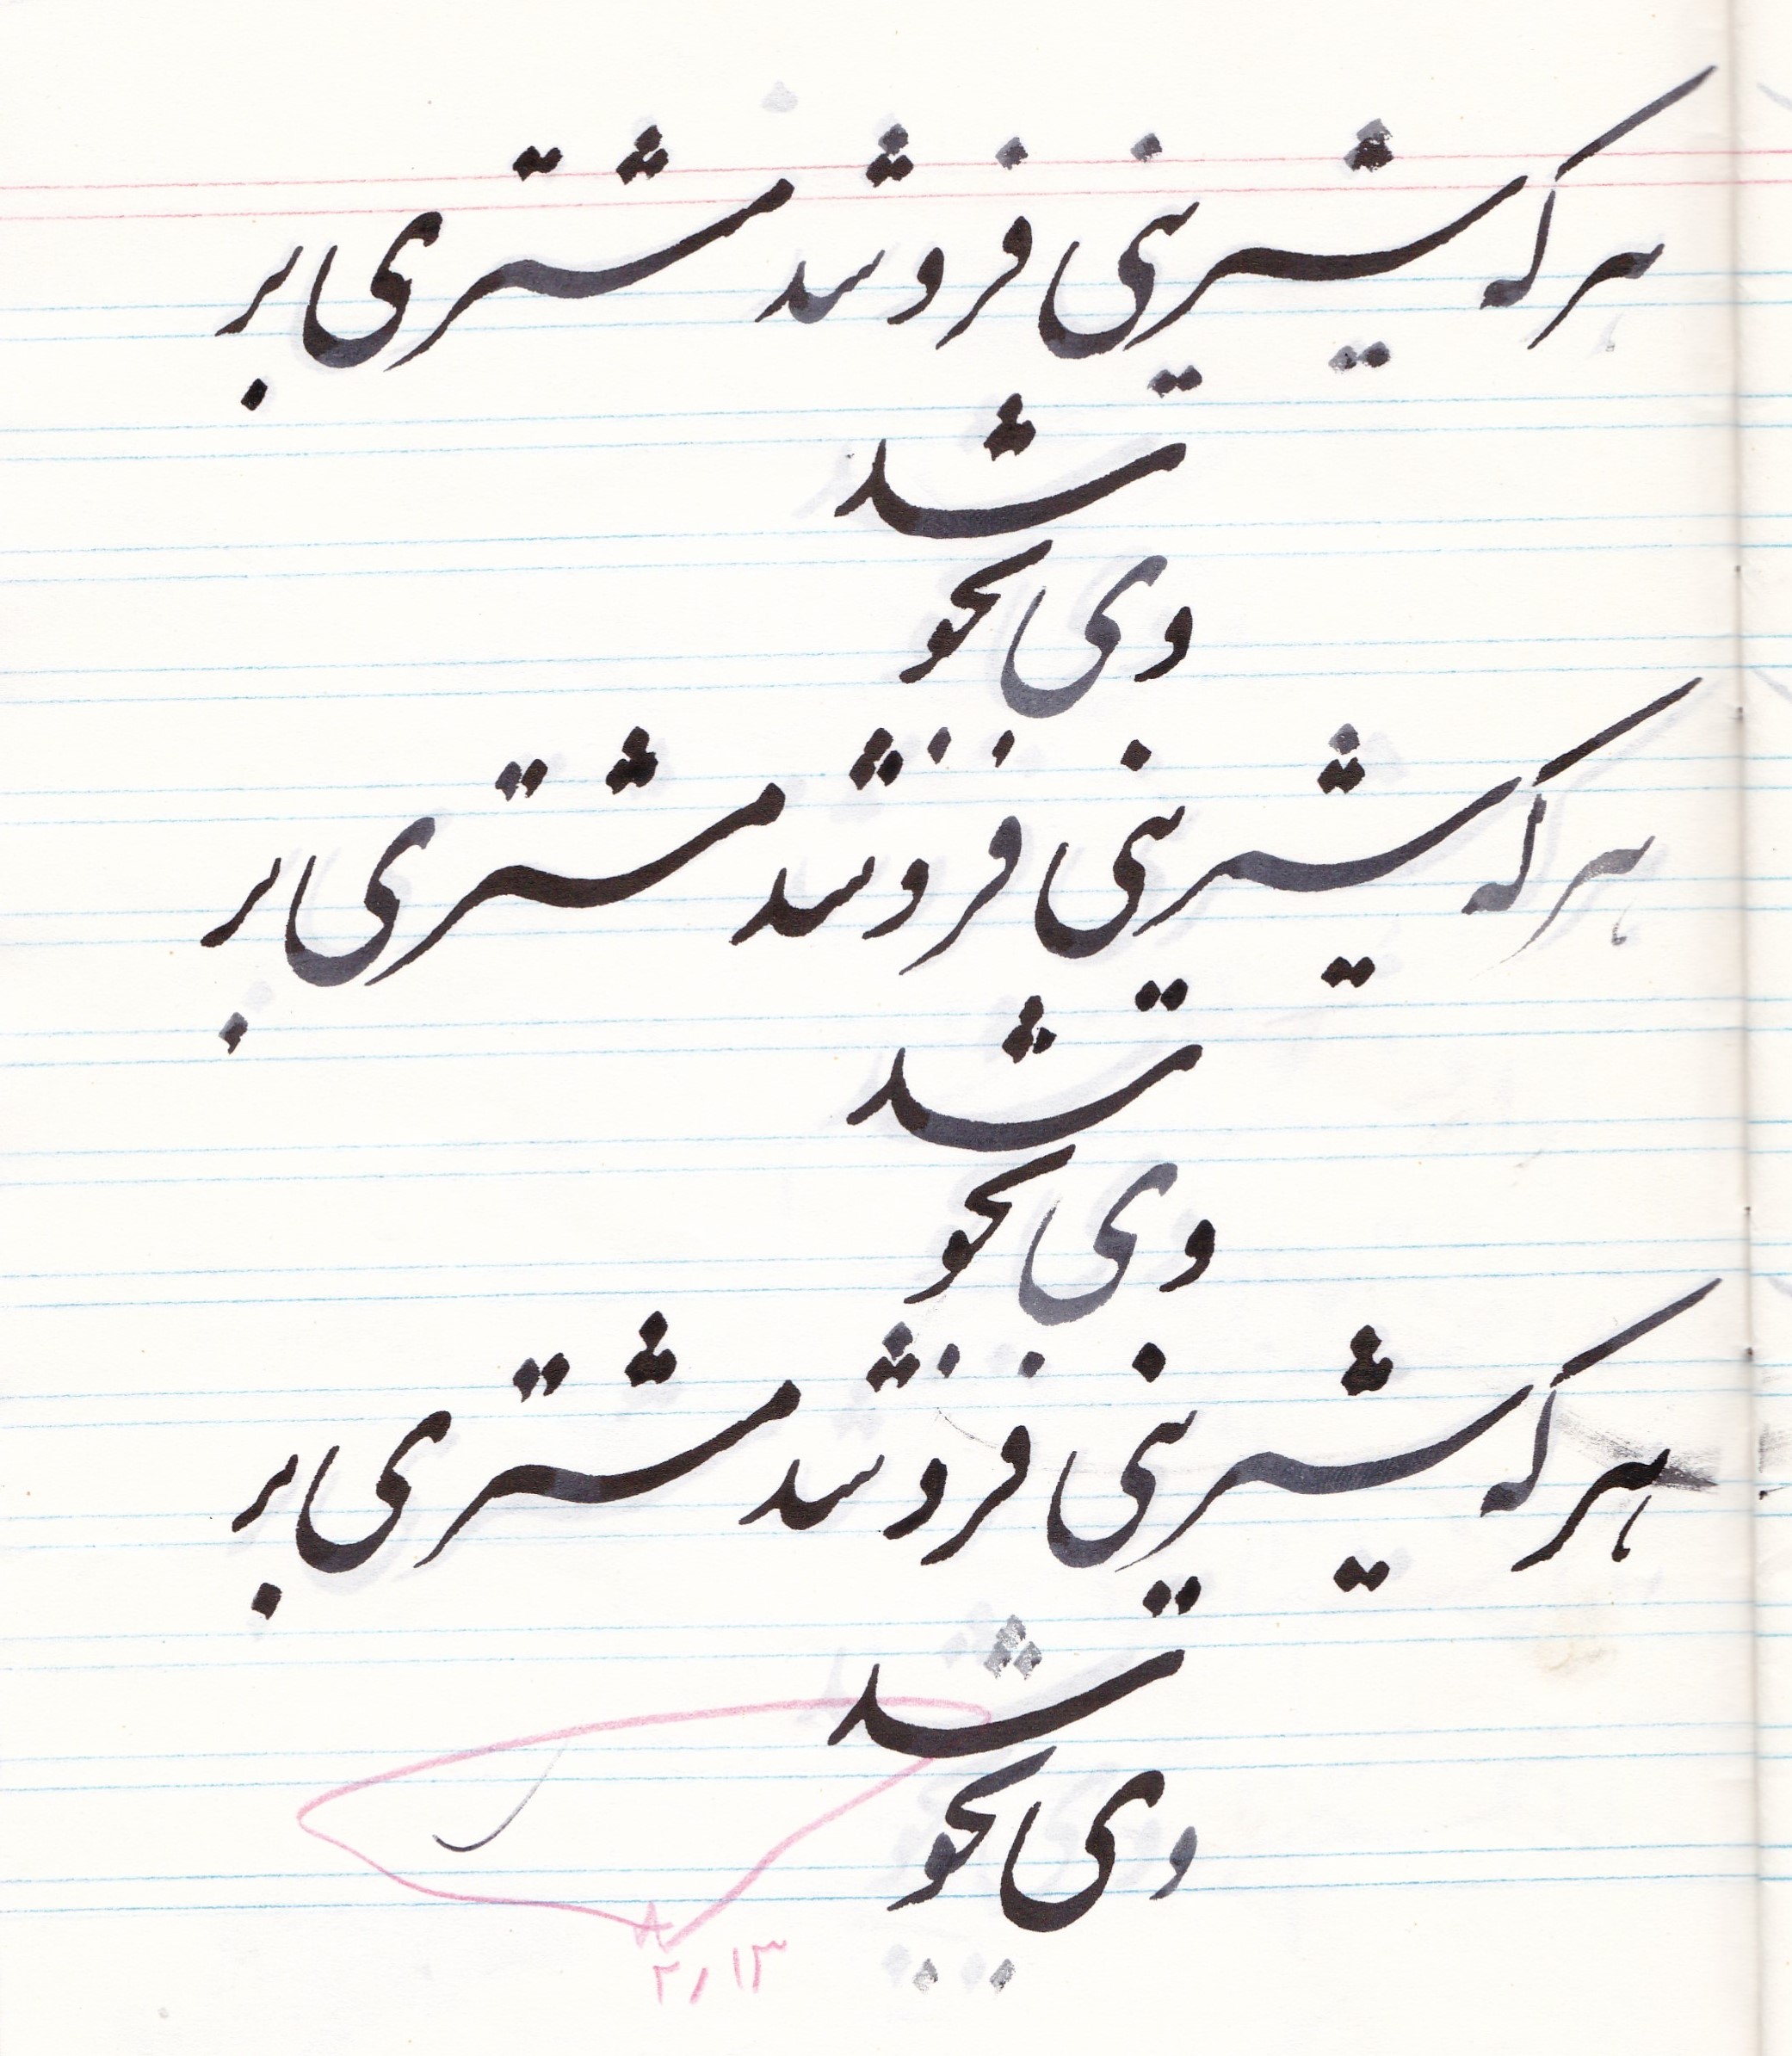 هر که شیرینی فروشد مشتری بر
وی بجوشد
هر که شیرینی فروشد مشتری بر
وی بجوشد
هر که شیرینی فروشد مشتری بر
وی بجوشد
۲/۱۳